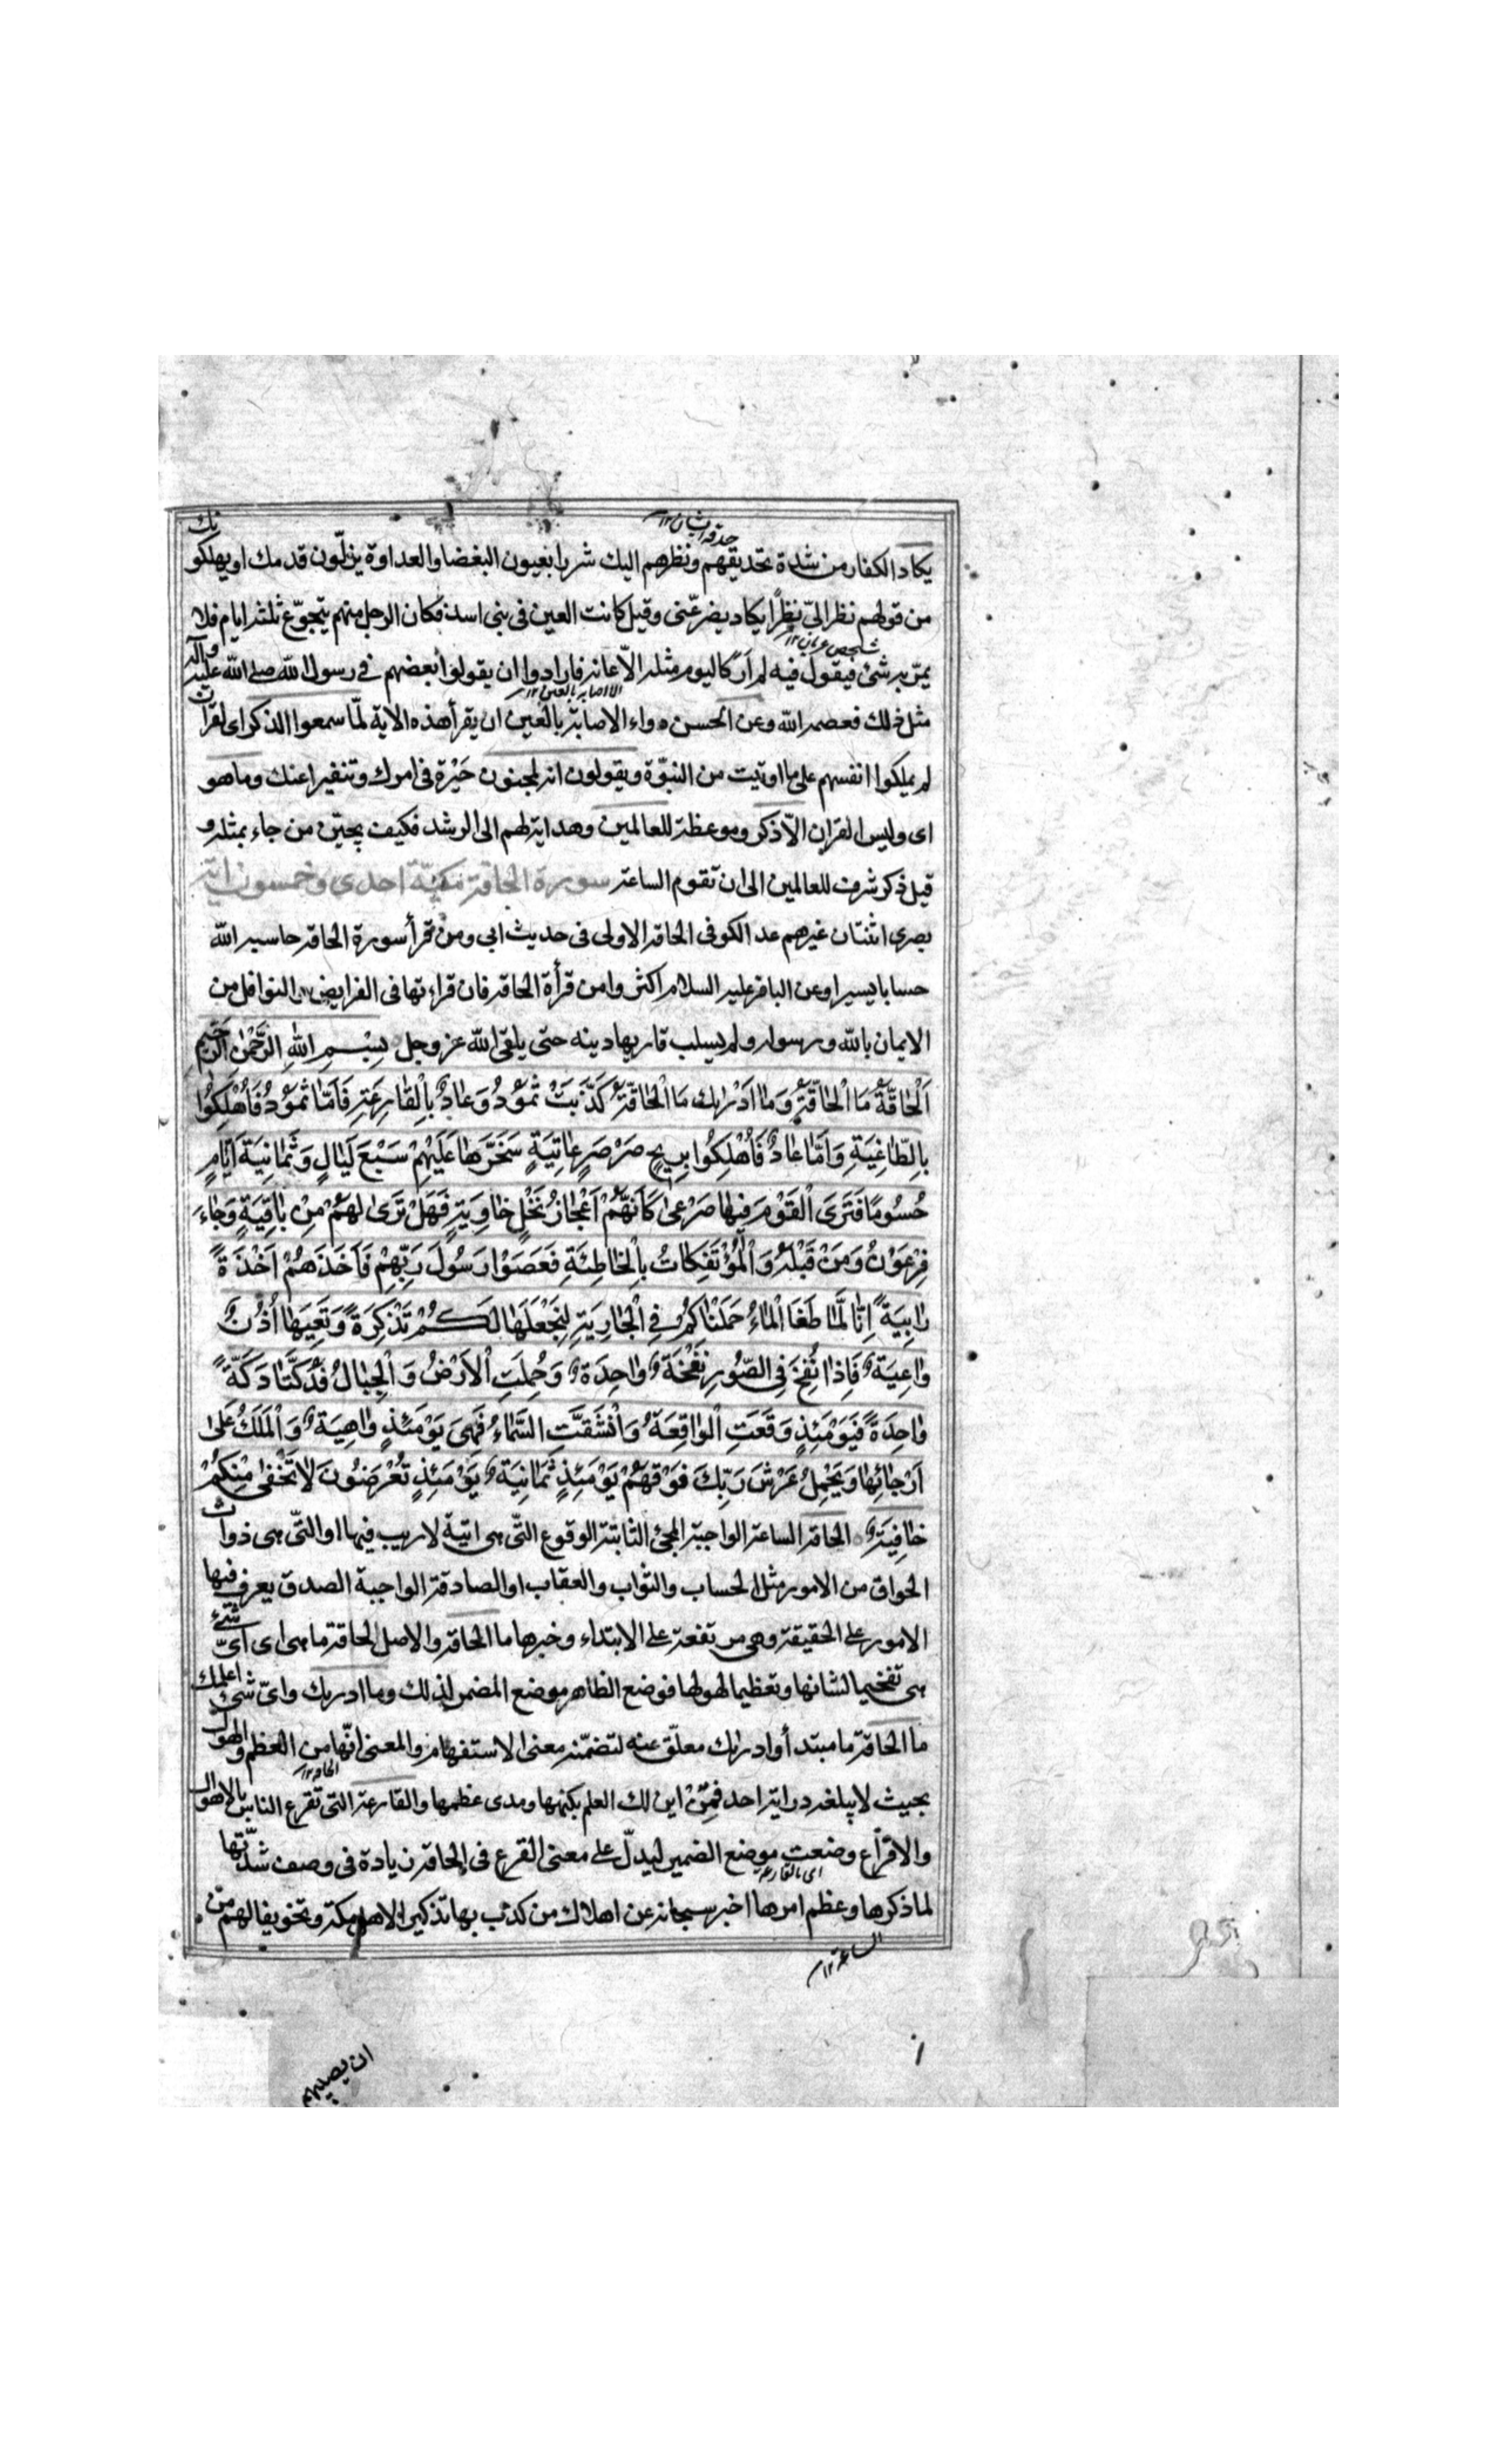 يكاد الكفار من شدة تحديقهم ونظرهم اليك شررا بعيون البغضا والعداوة يزلّون قدمك او يهلكونك
من قولهم نظر الىّ نظرًا يكاد يضرعّنى وقيل كانت العين فى بنى اسد فكان الرجل منهم يتجوّع ثلثة ايام فلا
يمرّ به شئ فيقول فيه لم اَرَ كاليوم مثله الّا عانه فارادوا ان يقولوا بعضهم فى رسول الله صلى الله عليه وآله
مثل ذلك فعصمه الله وعن الحسن دواء الاصابة بالعين ان يقرأ هذه الاية لمّا سمعوا الذكر اى القرآن
لم يملكوا انفسهم على ما اوتيت من النبوّة ويقولون انه لمجنون حَيْرة فى امرك وتنفيرا عنك وما هو
اى وليس القران الّا ذكر وموعظة للعالمين وهداية لهم الى الرشد فكيف يجنّن من جاء بمثله و
قيل ذكر شرف للعالمين الى ان تقوم الساعة سورة الحاقة مكيّة احدى وخمسون اية
بصرى اثنتان غيرهم عد الكوفى الحاقة الاولى فى حديث ابى ومن قرأ سورة الحاقة حاسبه الله
حسابا يسيرا وعن الباقر عليه السلام اكثروا من قرأة الحاقة فان قراءتها فى الفرايض والنوافل من
الايمان بالله ورسوله ولم يسلب قاريها دينه حتى يلقى الله عز وجل بِسْمِ اللهِ الرَّحْمٰنِ الرَّحِيمِ
اَلْحَاقَّةُ مَا الْحَاقَّةُ وَمَا اَدْرٰيكَ مَا الْحَاقَّةُ كَذَّبَتْ ثَمُوْدُ وَعَادٌ بِالْقَارِعَةِ فَاَمَّا ثَمُوْدُ فَاُهْلِكُوا
بِالطَّاغِيَةِ وَاَمَّا عَادٌ فَاُهْلِكُوا بِرِيحٍ صَرْصَرٍ عَاتِيَةٍ سَخَّرَهَا عَلَيْهِمْ سَبْعَ لَيَالٍ وَثَمَانِيَةَ اَيَّامٍ
حُسُومًا فَتَرَى الْقَوْمَ فِيهَا صَرْعٰى كَاَنَّهُمْ اَعْجَازُ نَخْلٍ خَاوِيَةٍ فَهَلْ تَرٰى لَهُمْ مِنْ بَاقِيَةٍ وَجَاءَ
فِرْعَوْنُ وَمَنْ قَبْلَهُ وَالْمُؤْتَفِكَاتُ بِالْخَاطِئَةِ فَعَصَوْا رَسُولَ رَبِّهِمْ فَاَخَذَهُمْ اَخْذَةً
رَابِيَةً اِنَّا لَمَّا طَغَا الْمَاءُ حَمَلْنَاكُمْ فِى الْجَارِيَةِ لِنَجْعَلَهَا لَكُمْ تَذْكِرَةً وَتَعِيَهَا اُذُنٌ
وَاعِيَةٌ فَاِذَا نُفِخَ فِى الصُّورِ نَفْخَةٌ وَاحِدَةٌ وَحُمِلَتِ الْاَرْضُ وَالْجِبَالُ فَدُكَّتَا دَكَّةً
وَاحِدَةً فَيَوْمَئِذٍ وَقَعَتِ الْوَاقِعَةُ وَانْشَقَّتِ السَّمَاءُ فَهِىَ يَوْمَئِذٍ وَاهِيَةٌ وَالْمَلَكُ عَلٰى
اَرْجَائِهَا وَيَحْمِلُ عَرْشَ رَبِّكَ فَوْقَهُمْ يَوْمَئِذٍ ثَمَانِيَةٌ يَوْمَئِذٍ تُعْرَضُونَ لَا تَخْفٰى مِنْكُمْ
خَافِيَةٌ الحاقة الساعة الواجبة المجئ الثابتة الوقوع الّتى هى اتية لا ريب فيها او الّتى هى ذوات
الحواق من الامور مثل الحساب والثواب والعقاب او الصادقة الواجبة الصدق يعرف فيها
الامور على الحقيقة وهى مرتفعة على الابتداء وخبرها ما الحاقة والاصل الحاقة ما هى اى اىّ شئ
هى تفخيما لشانها وتعظيما لهولها فوضع الظاهر موضع المضمر لذلك وما ادريك واىّ شئ اعلمك
ما الحاقة ما مبتدأ وادراك معلّق عنه لتضمّنه معنى الاستفهام والمعنى انّها من العظم والهول
بحيث لا يبلغه دراية احد فمِنْ اين لك العلم بكنهها ومدى عظمها والقارعة التى تقرع الناس بالاهوال
والاقزاع وضعت موضع الضمير ليدلّ على معنى القرع فى الحاقة زيادة فى وصف شدّتها
لما ذكرها وعظم امرها اخبر سبحانه عن اهلاك من كذّب بها تذكيرا لاهل مكة وتخويفا لهم من
الساعة ١٢
ان يصيبهم